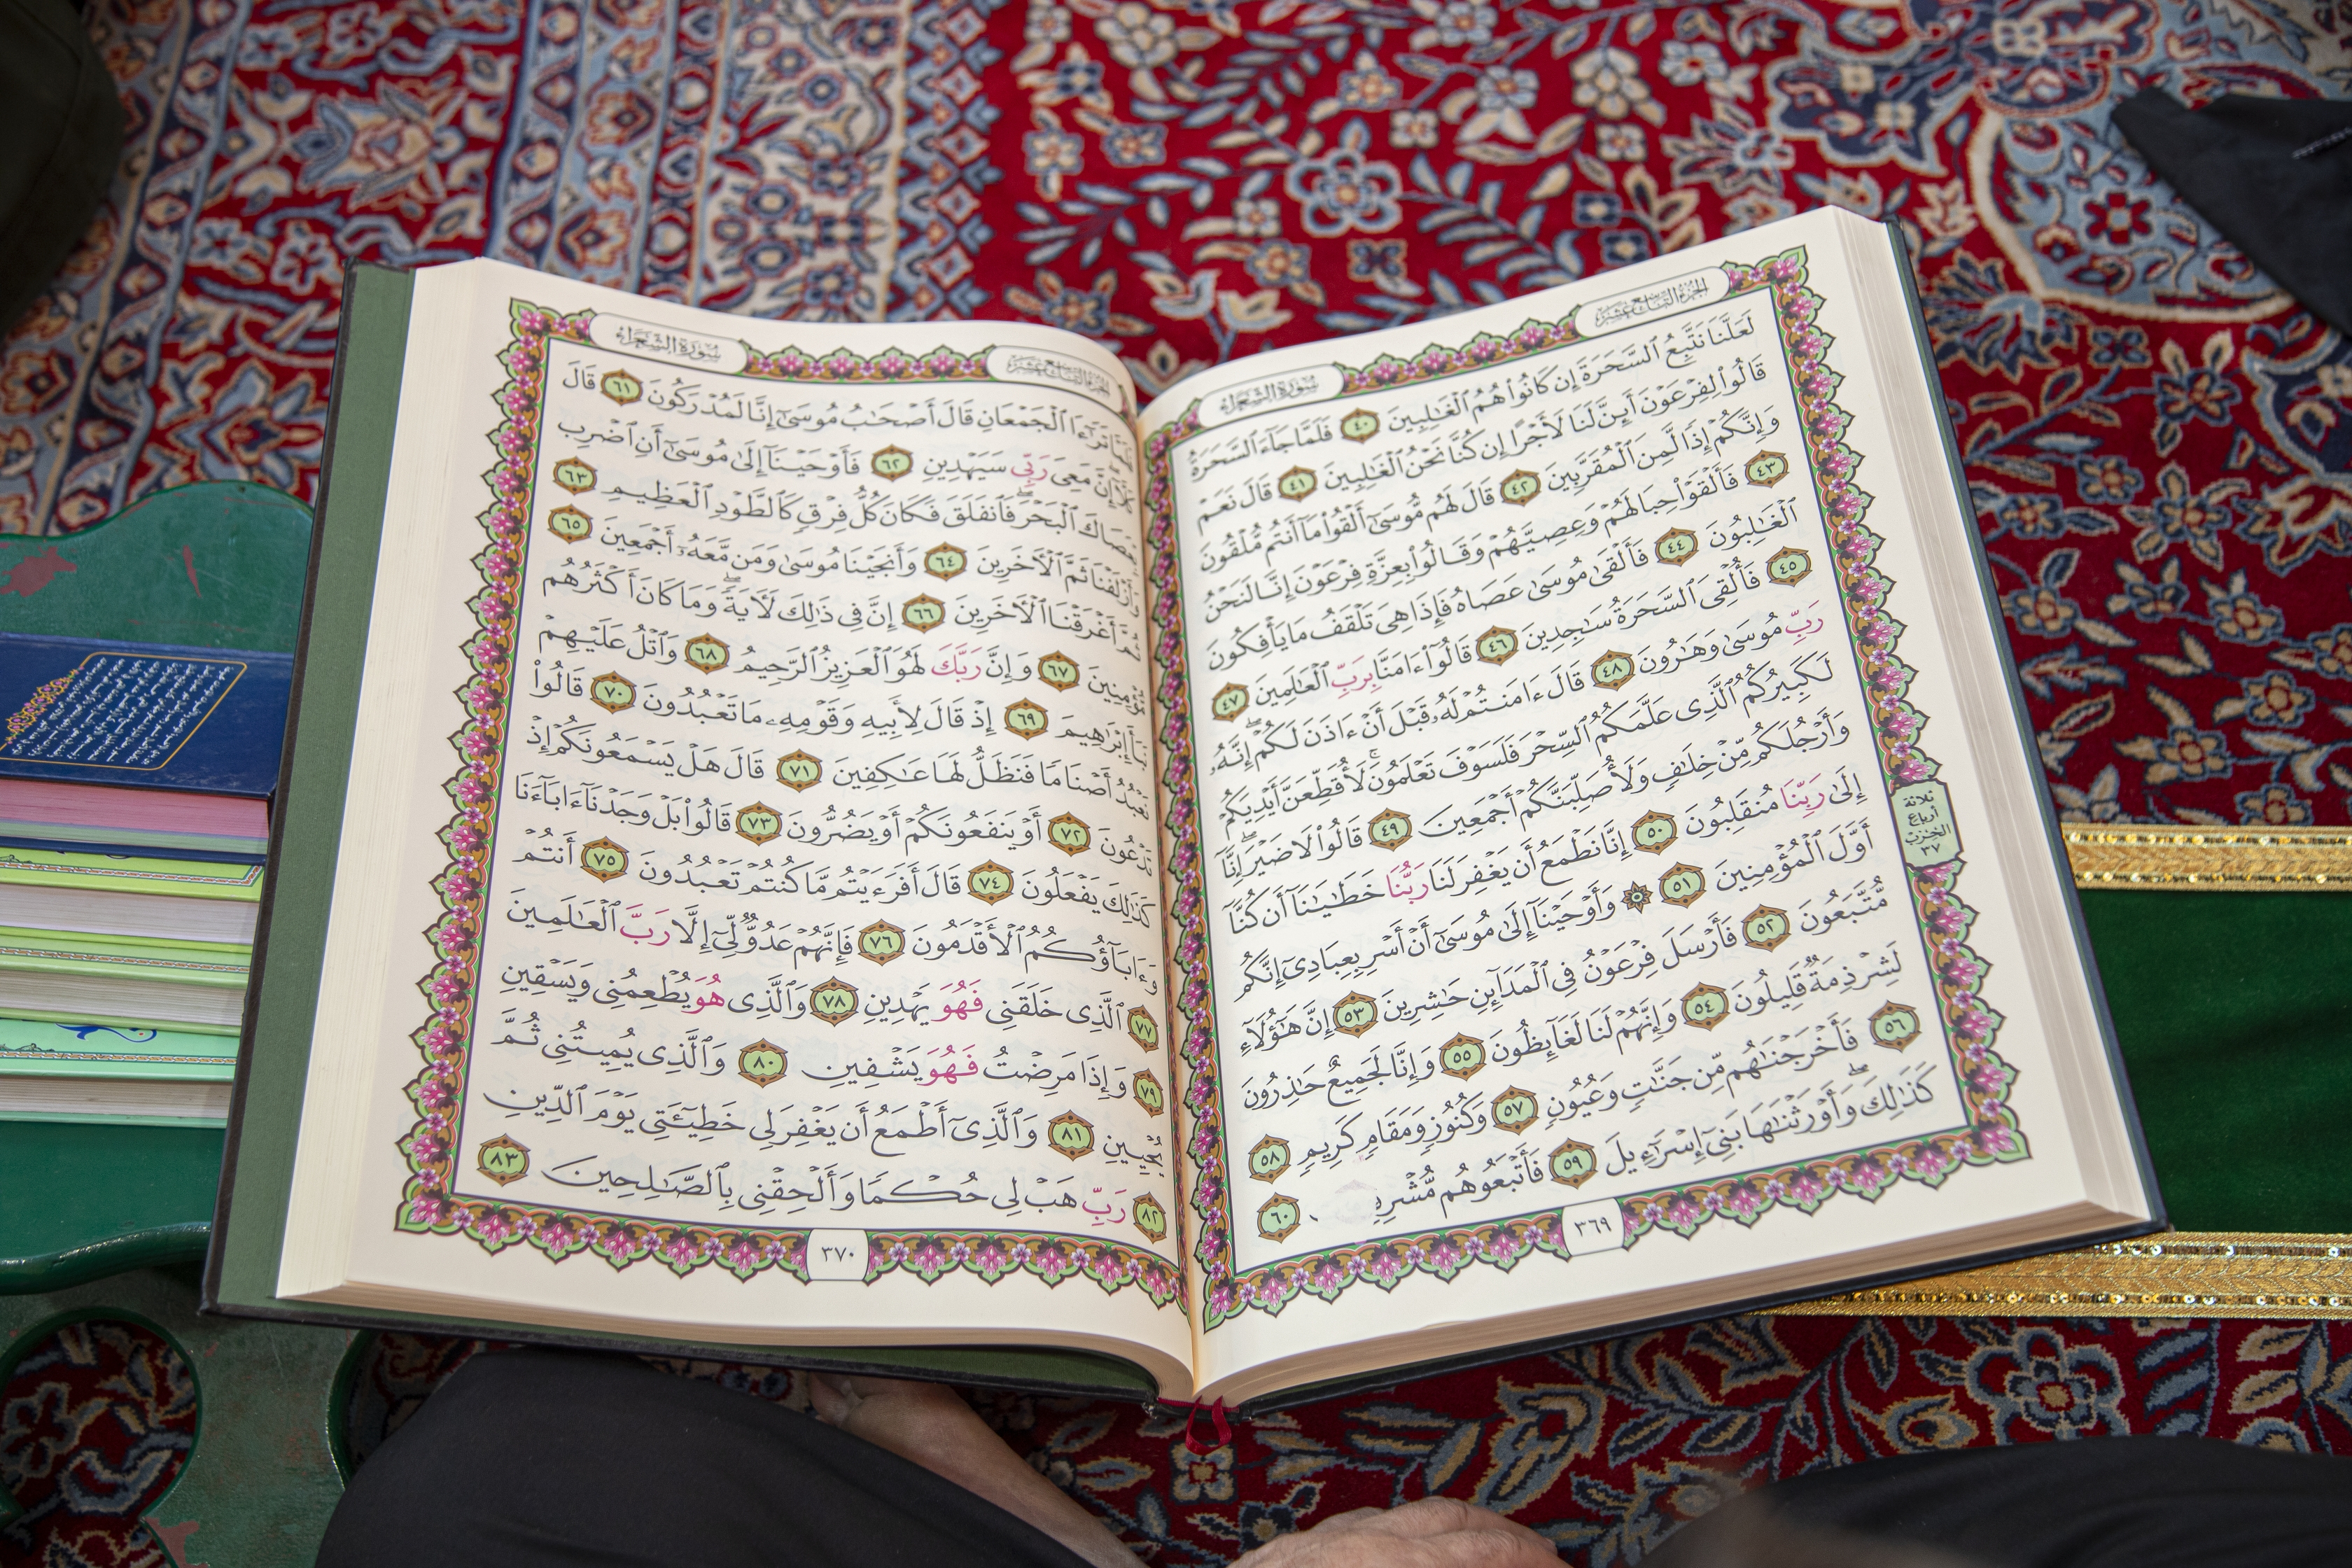 الجزء التاسع عشر
سورة الشعراء
لَعَلَّنَا نَتَّبِعُ ٱلسَّحَرَةَ إِن كَانُوا۟ هُمُ ٱلْغَـٰلِبِينَ ٤٠ فَلَمَّا جَآءَ ٱلسَّحَرَةُ
قَالُوا۟ لِفِرْعَوْنَ أَئِنَّ لَنَا لَأَجْرًا إِن كُنَّا نَحْنُ ٱلْغَـٰلِبِينَ ٤١ قَالَ نَعَمْ
وَإِنَّكُمْ إِذًا لَّمِنَ ٱلْمُقَرَّبِينَ ٤٢ قَالَ لَهُم مُّوسَىٰٓ أَلْقُوا۟ مَآ أَنتُم مُّلْقُونَ
٤٣ فَأَلْقَوْا۟ حِبَالَهُمْ وَعِصِيَّهُمْ وَقَالُوا۟ بِعِزَّةِ فِرْعَوْنَ إِنَّا لَنَحْنُ
ٱلْغَـٰلِبُونَ ٤٤ فَأَلْقَىٰ مُوسَىٰ عَصَاهُ فَإِذَا هِىَ تَلْقَفُ مَا يَأْفِكُونَ
٤٥ فَأُلْقِىَ ٱلسَّحَرَةُ سَـٰجِدِينَ ٤٦ قَالُوٓا۟ ءَامَنَّا بِرَبِّ ٱلْعَـٰلَمِينَ ٤٧
رَبِّ مُوسَىٰ وَهَـٰرُونَ ٤٨ قَالَ ءَامَنتُمْ لَهُۥ قَبْلَ أَنْ ءَاذَنَ لَكُمْ ۖ إِنَّهُۥ
لَكَبِيرُكُمُ ٱلَّذِى عَلَّمَكُمُ ٱلسِّحْرَ فَلَسَوْفَ تَعْلَمُونَ ۚ لَأُقَطِّعَنَّ أَيْدِيَكُمْ
وَأَرْجُلَكُم مِّنْ خِلَـٰفٍ وَلَأُصَلِّبَنَّكُمْ أَجْمَعِينَ ٤٩ قَالُوا۟ لَا ضَيْرَ ۖ إِنَّآ
إِلَىٰ رَبِّنَا مُنقَلِبُونَ ٥٠ إِنَّا نَطْمَعُ أَن يَغْفِرَ لَنَا رَبُّنَا خَطَـٰيَـٰنَآ أَن كُنَّآ
أَوَّلَ ٱلْمُؤْمِنِينَ ٥١ ۞ وَأَوْحَيْنَآ إِلَىٰ مُوسَىٰٓ أَنْ أَسْرِ بِعِبَادِىٓ إِنَّكُم
مُّتَّبَعُونَ ٥٢ فَأَرْسَلَ فِرْعَوْنُ فِى ٱلْمَدَآئِنِ حَـٰشِرِينَ ٥٣ إِنَّ هَـٰٓؤُلَآءِ
لَشِرْذِمَةٌ قَلِيلُونَ ٥٤ وَإِنَّهُمْ لَنَا لَغَآئِظُونَ ٥٥ وَإِنَّا لَجَمِيعٌ حَـٰذِرُونَ
٥٦ فَأَخْرَجْنَـٰهُم مِّن جَنَّـٰتٍ وَعُيُونٍ ٥٧ وَكُنُوزٍ وَمَقَامٍ كَرِيمٍ ٥٨
كَذَٰلِكَ ۖ وَأَوْرَثْنَـٰهَا بَنِىٓ إِسْرَٰٓءِيلَ ٥٩ فَأَتْبَعُوهُم ٦٠
ثلاثة
أرباع
الحزب
٣٧
٣٦٩
الجزء التاسع عشر
سورة الشعراء
تَرَٰٓءَا ٱلْجَمْعَانِ قَالَ أَصْحَـٰبُ مُوسَىٰٓ إِنَّا لَمُدْرَكُونَ ٦١ قَالَ
كَلَّآ ۖ إِنَّ مَعِىَ رَبِّى سَيَهْدِينِ ٦٢ فَأَوْحَيْنَآ إِلَىٰ مُوسَىٰٓ أَنِ ٱضْرِب
ٱلْبَحْرَ ۖ فَٱنفَلَقَ فَكَانَ كُلُّ فِرْقٍ كَٱلطَّوْدِ ٱلْعَظِيمِ ٦٣
وَأَزْلَفْنَا ثَمَّ ٱلْـَٔاخَرِينَ ٦٤ وَأَنجَيْنَا مُوسَىٰ وَمَن مَّعَهُۥٓ أَجْمَعِينَ ٦٥
أَغْرَقْنَا ٱلْـَٔاخَرِينَ ٦٦ إِنَّ فِى ذَٰلِكَ لَـَٔايَةً ۖ وَمَا كَانَ أَكْثَرُهُم
مُّؤْمِنِينَ ٦٧ وَإِنَّ رَبَّكَ لَهُوَ ٱلْعَزِيزُ ٱلرَّحِيمُ ٦٨ وَٱتْلُ عَلَيْهِمْ
إِبْرَٰهِيمَ ٦٩ إِذْ قَالَ لِأَبِيهِ وَقَوْمِهِۦ مَا تَعْبُدُونَ ٧٠ قَالُوا۟
نَعْبُدُ أَصْنَامًا فَنَظَلُّ لَهَا عَـٰكِفِينَ ٧١ قَالَ هَلْ يَسْمَعُونَكُمْ إِذْ
تَدْعُونَ ٧٢ أَوْ يَنفَعُونَكُمْ أَوْ يَضُرُّونَ ٧٣ قَالُوا۟ بَلْ وَجَدْنَآ ءَابَآءَنَا
كَذَٰلِكَ يَفْعَلُونَ ٧٤ قَالَ أَفَرَءَيْتُم مَّا كُنتُمْ تَعْبُدُونَ ٧٥ أَنتُمْ
وَءَابَآؤُكُمُ ٱلْأَقْدَمُونَ ٧٦ فَإِنَّهُمْ عَدُوٌّ لِّىٓ إِلَّا رَبَّ ٱلْعَـٰلَمِينَ
٧٧ ٱلَّذِى خَلَقَنِى فَهُوَ يَهْدِينِ ٧٨ وَٱلَّذِى هُوَ يُطْعِمُنِى وَيَسْقِينِ
٧٩ وَإِذَا مَرِضْتُ فَهُوَ يَشْفِينِ ٨٠ وَٱلَّذِى يُمِيتُنِى ثُمَّ
يُحْيِينِ ٨١ وَٱلَّذِىٓ أَطْمَعُ أَن يَغْفِرَ لِى خَطِيٓـَٔتِى يَوْمَ ٱلدِّينِ
٨٢ رَبِّ هَبْ لِى حُكْمًا وَأَلْحِقْنِى بِٱلصَّـٰلِحِينَ ٨٣
٣٧٠